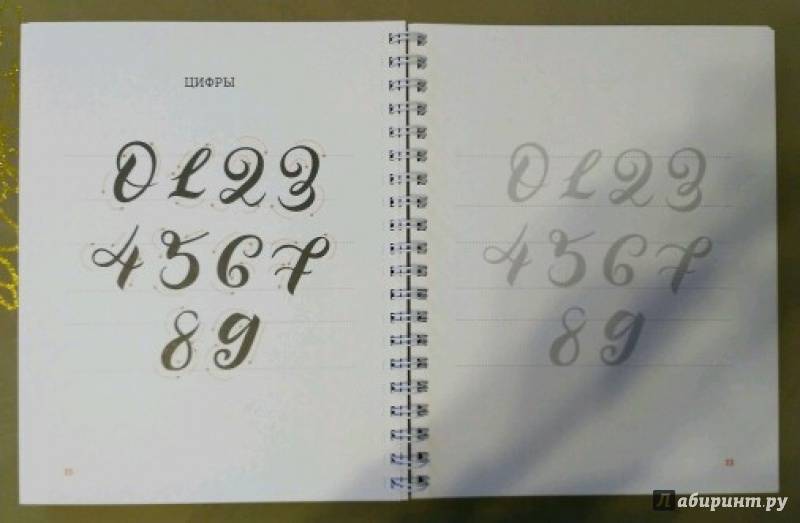 ЦИФРЫ
0123
4567
89
0123
4567
89
33
Лабиринт.ру